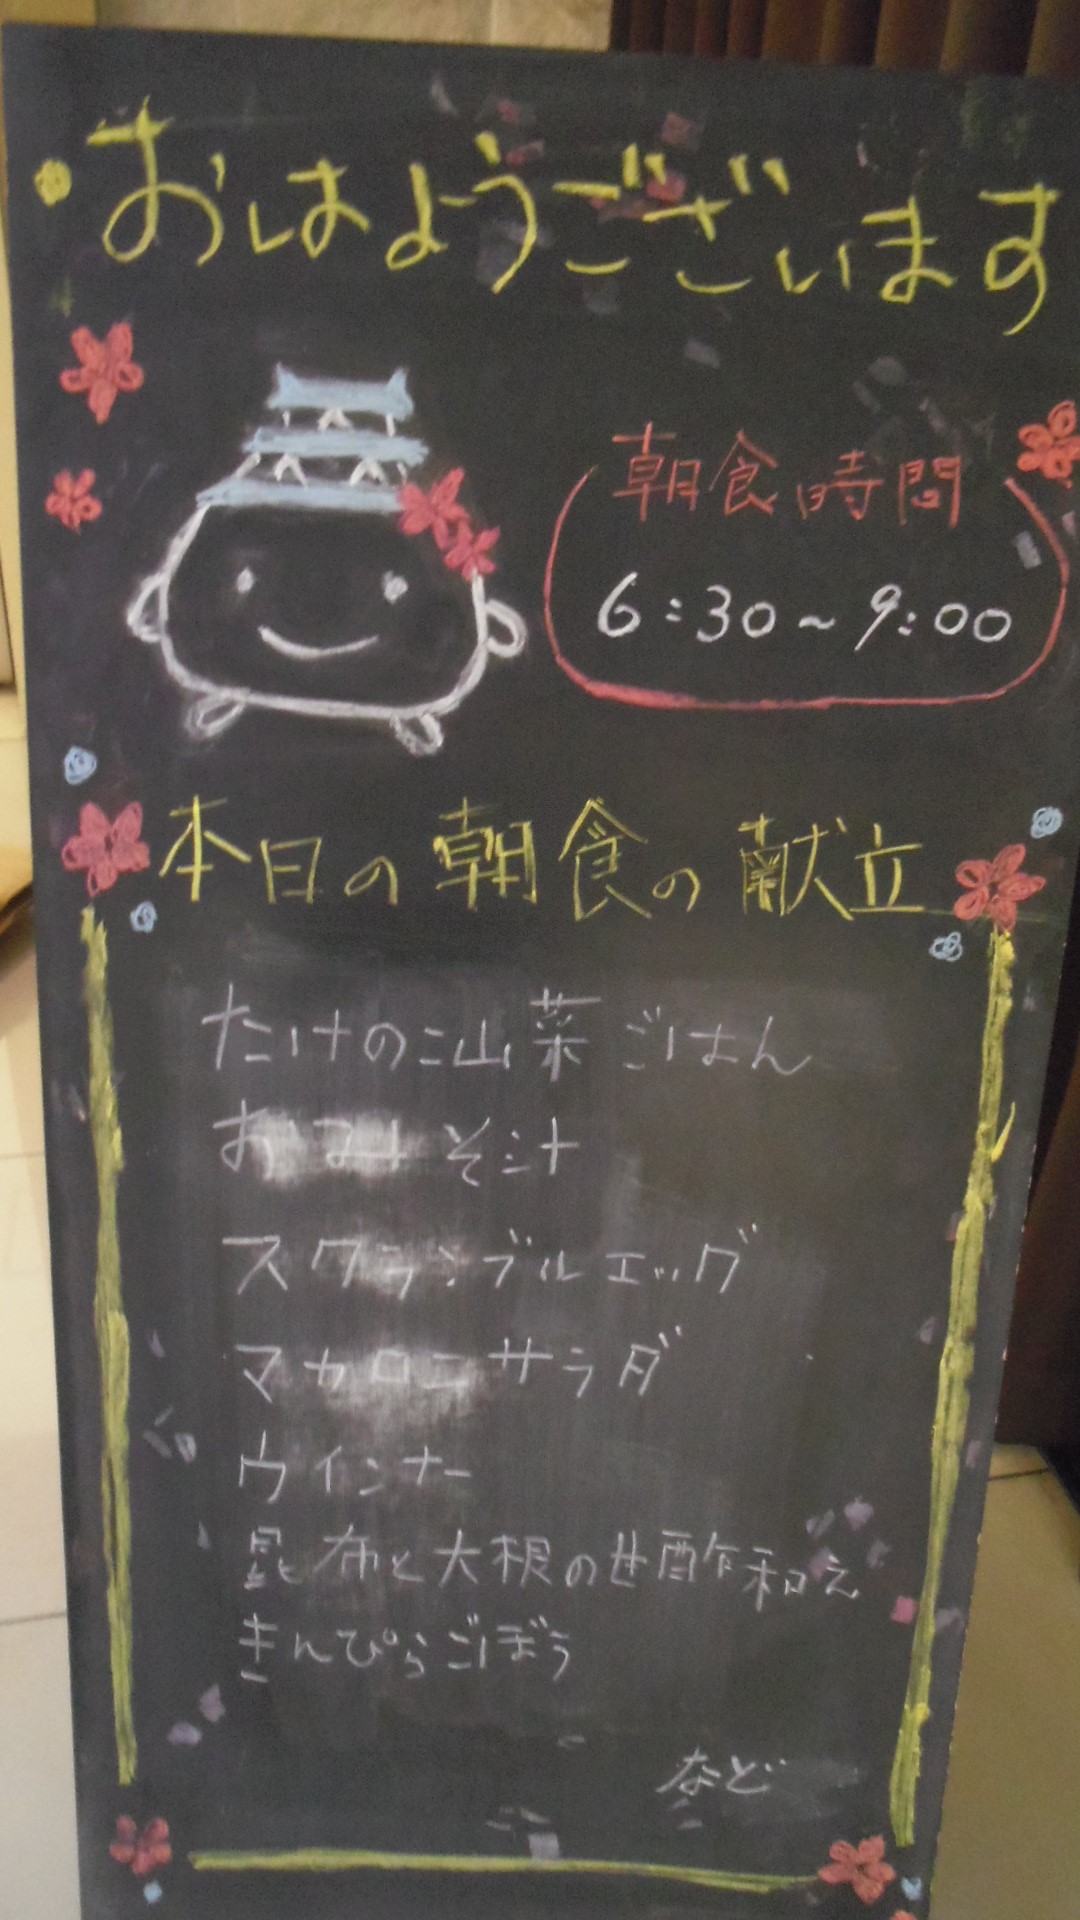 おはようございます
朝食時間
6:30~9:00
本日の朝食の献立
たけのこ山菜ごはん
おみそ汁
スクランブルエッグ
マカロニサラダ
ウインナー
昆布と大根の甘酢和え
きんぴらごぼう
など